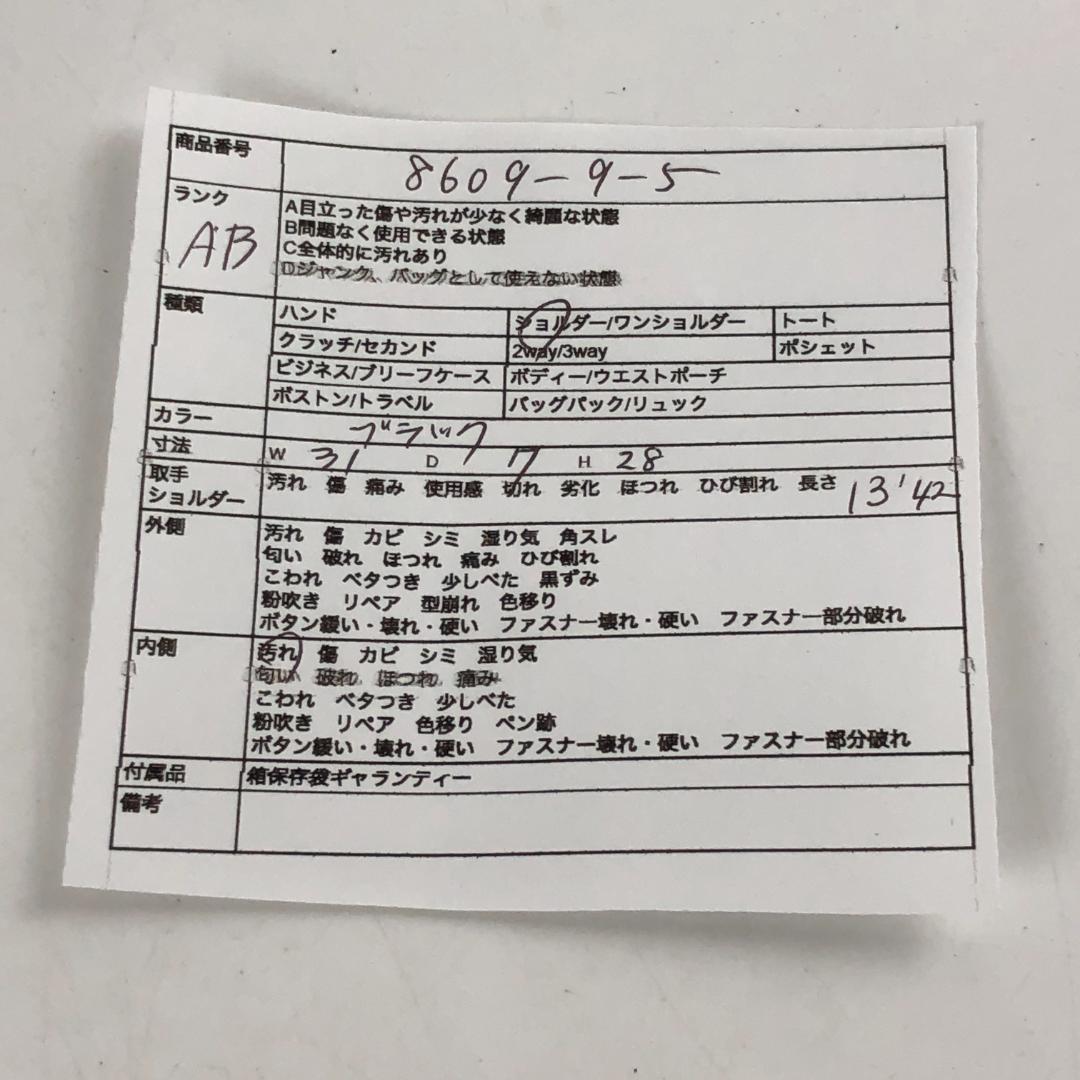 商品番号 8609-9-5
ランク AB
A目立った傷や汚れが少なく綺麗な状態
B問題なく使用できる状態
C全体的に汚れあり
Dジャンク、バッグとして使えない状態
種類 ハンド ショルダー/ワンショルダー トート
クラッチ/セカンド 2way/3way ポシェット
ビジネス/ブリーフケース ボディー/ウエストポーチ
ボストン/トラベル バッグパック/リュック
カラー ブラック
寸法 W 31 D 17 H 28
取手
ショルダー
汚れ 傷 痛み 使用感 切れ 劣化 ほつれ ひび割れ 長さ 13'42
外側 汚れ 傷 カビ シミ 湿り気 角スレ
匂い 破れ ほつれ 痛み ひび割れ
こわれ ベタつき 少しべた 黒ずみ
粉吹き リペア 型崩れ 色移り
ボタン緩い・壊れ・硬い ファスナー壊れ・硬い ファスナー部分破れ
内側 汚れ 傷 カビ シミ 湿り気
匂い 破れ ほつれ 痛み
こわれ ベタつき 少しべた
粉吹き リペア 色移り ペン跡
ボタン緩い・壊れ・硬い ファスナー壊れ・硬い ファスナー部分破れ
付属品 箱保存袋ギャランティー
備考